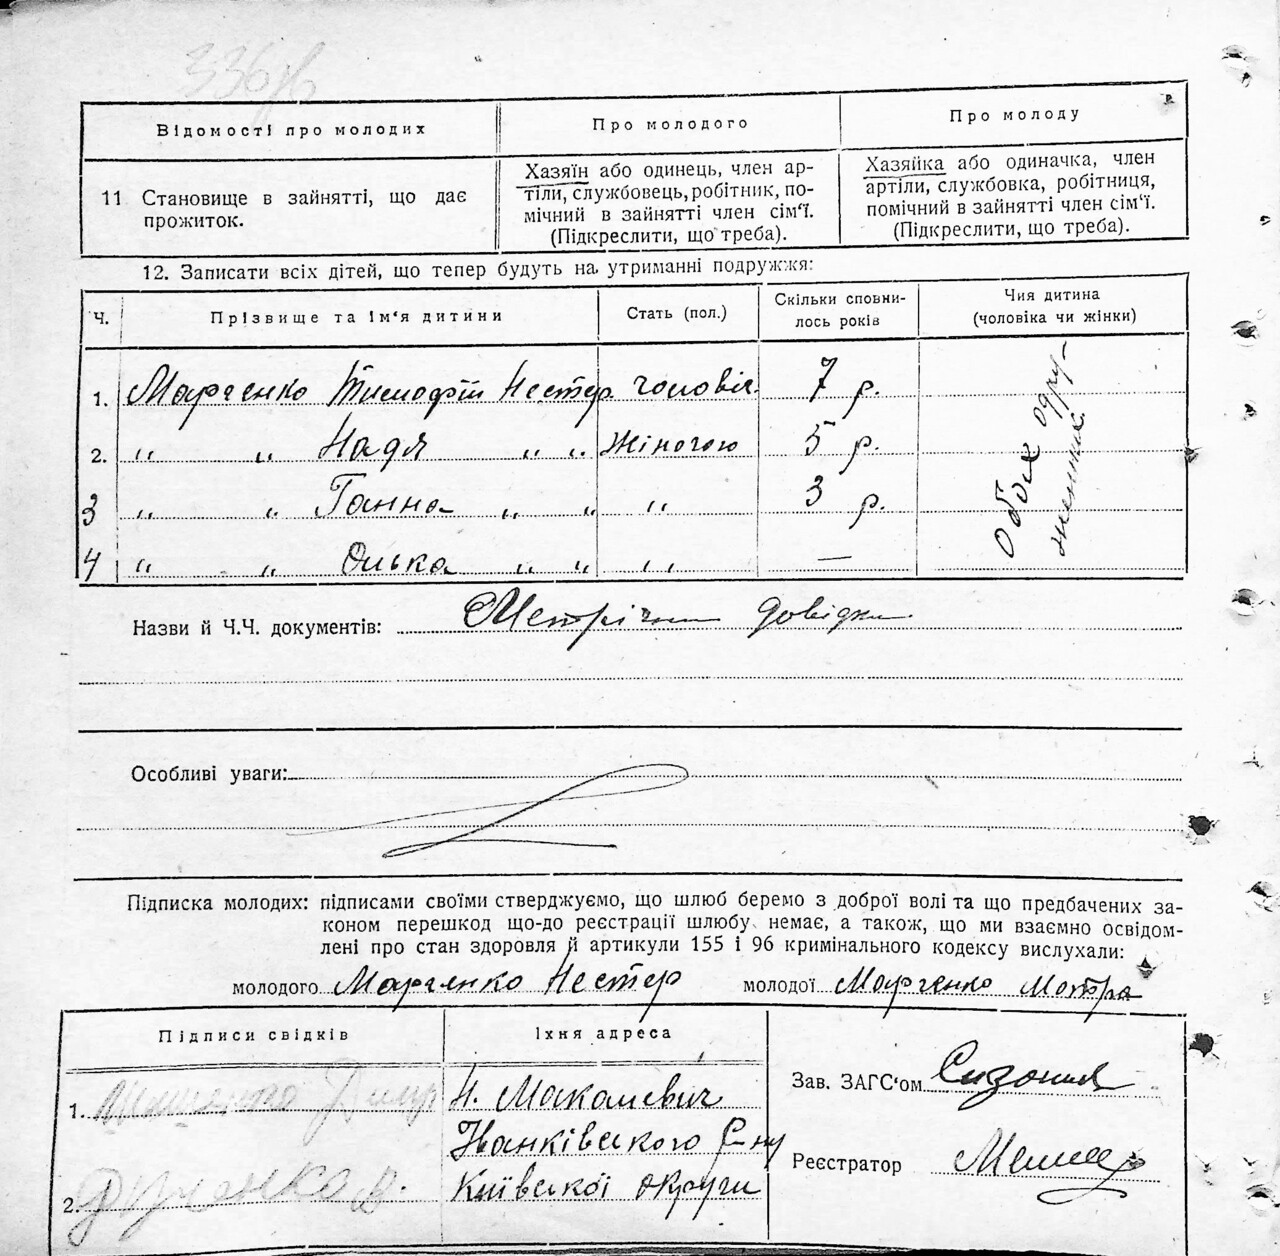 336зв
Відомості про молодих
Про молодого
Про молоду
11 Становище в зайнятті, що дає
прожиток.
Хазяїн або одинець, член ар-
тіли, службовець, робітник, по-
мічний в зайнятті член сім'ї.
(Підкреслити, що треба).
Хазяйка або одиначка, член
артіли, службовка, робітниця,
помічний в зайнятті член сім'ї.
(Підкреслити, що треба).
12. Записати всіх дітей, що тепер будуть на утриманні подружжя:
Ч.
Прізвище та ім'я дитини
Стать (пол.)
Скільки сповни-
лось років
Чия дитина
(чоловіка чи жінки)
1. Марченко Тимофій Нестер. чоловіч. 7 р.
2. " " Надя " " Жіночою 5 р.
3 " " Ганна " " " 3 р.
4 " " Олька " " " —
Обох одру-
женних
Назви й Ч.Ч. документів: Метрічни довідки
Особливі уваги:
Підписка молодих: підписами своїми стверджуємо, що шлюб беремо з доброї волі та що предбачених за-
коном перешкод що-до реєстрації шлюбу немає, а також, що ми взаємно освідом-
лені про стан здоровля й артикули 155 і 96 кримінального кодексу вислухали:
молодого Марченко Нестер молодої Марченко Мотря
Підписи свідків
Їхня адреса
1.
Н. Макалевич
Іванківського Р-ну
2.
Київської округи
Зав. ЗАГС'ом
Реєстратор